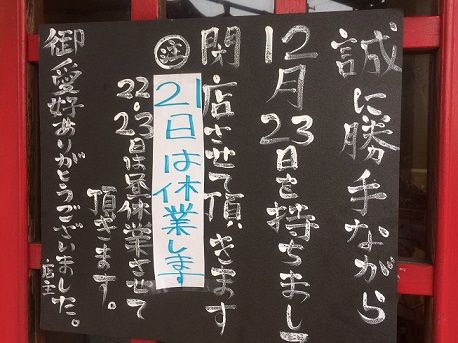 誠に勝手ながら
12月23日を持ちまして
閉店させて頂きます
㊟
21日は休業します
22.23日は昼休業させて
頂きます。
御愛好ありがとうございました。
店主